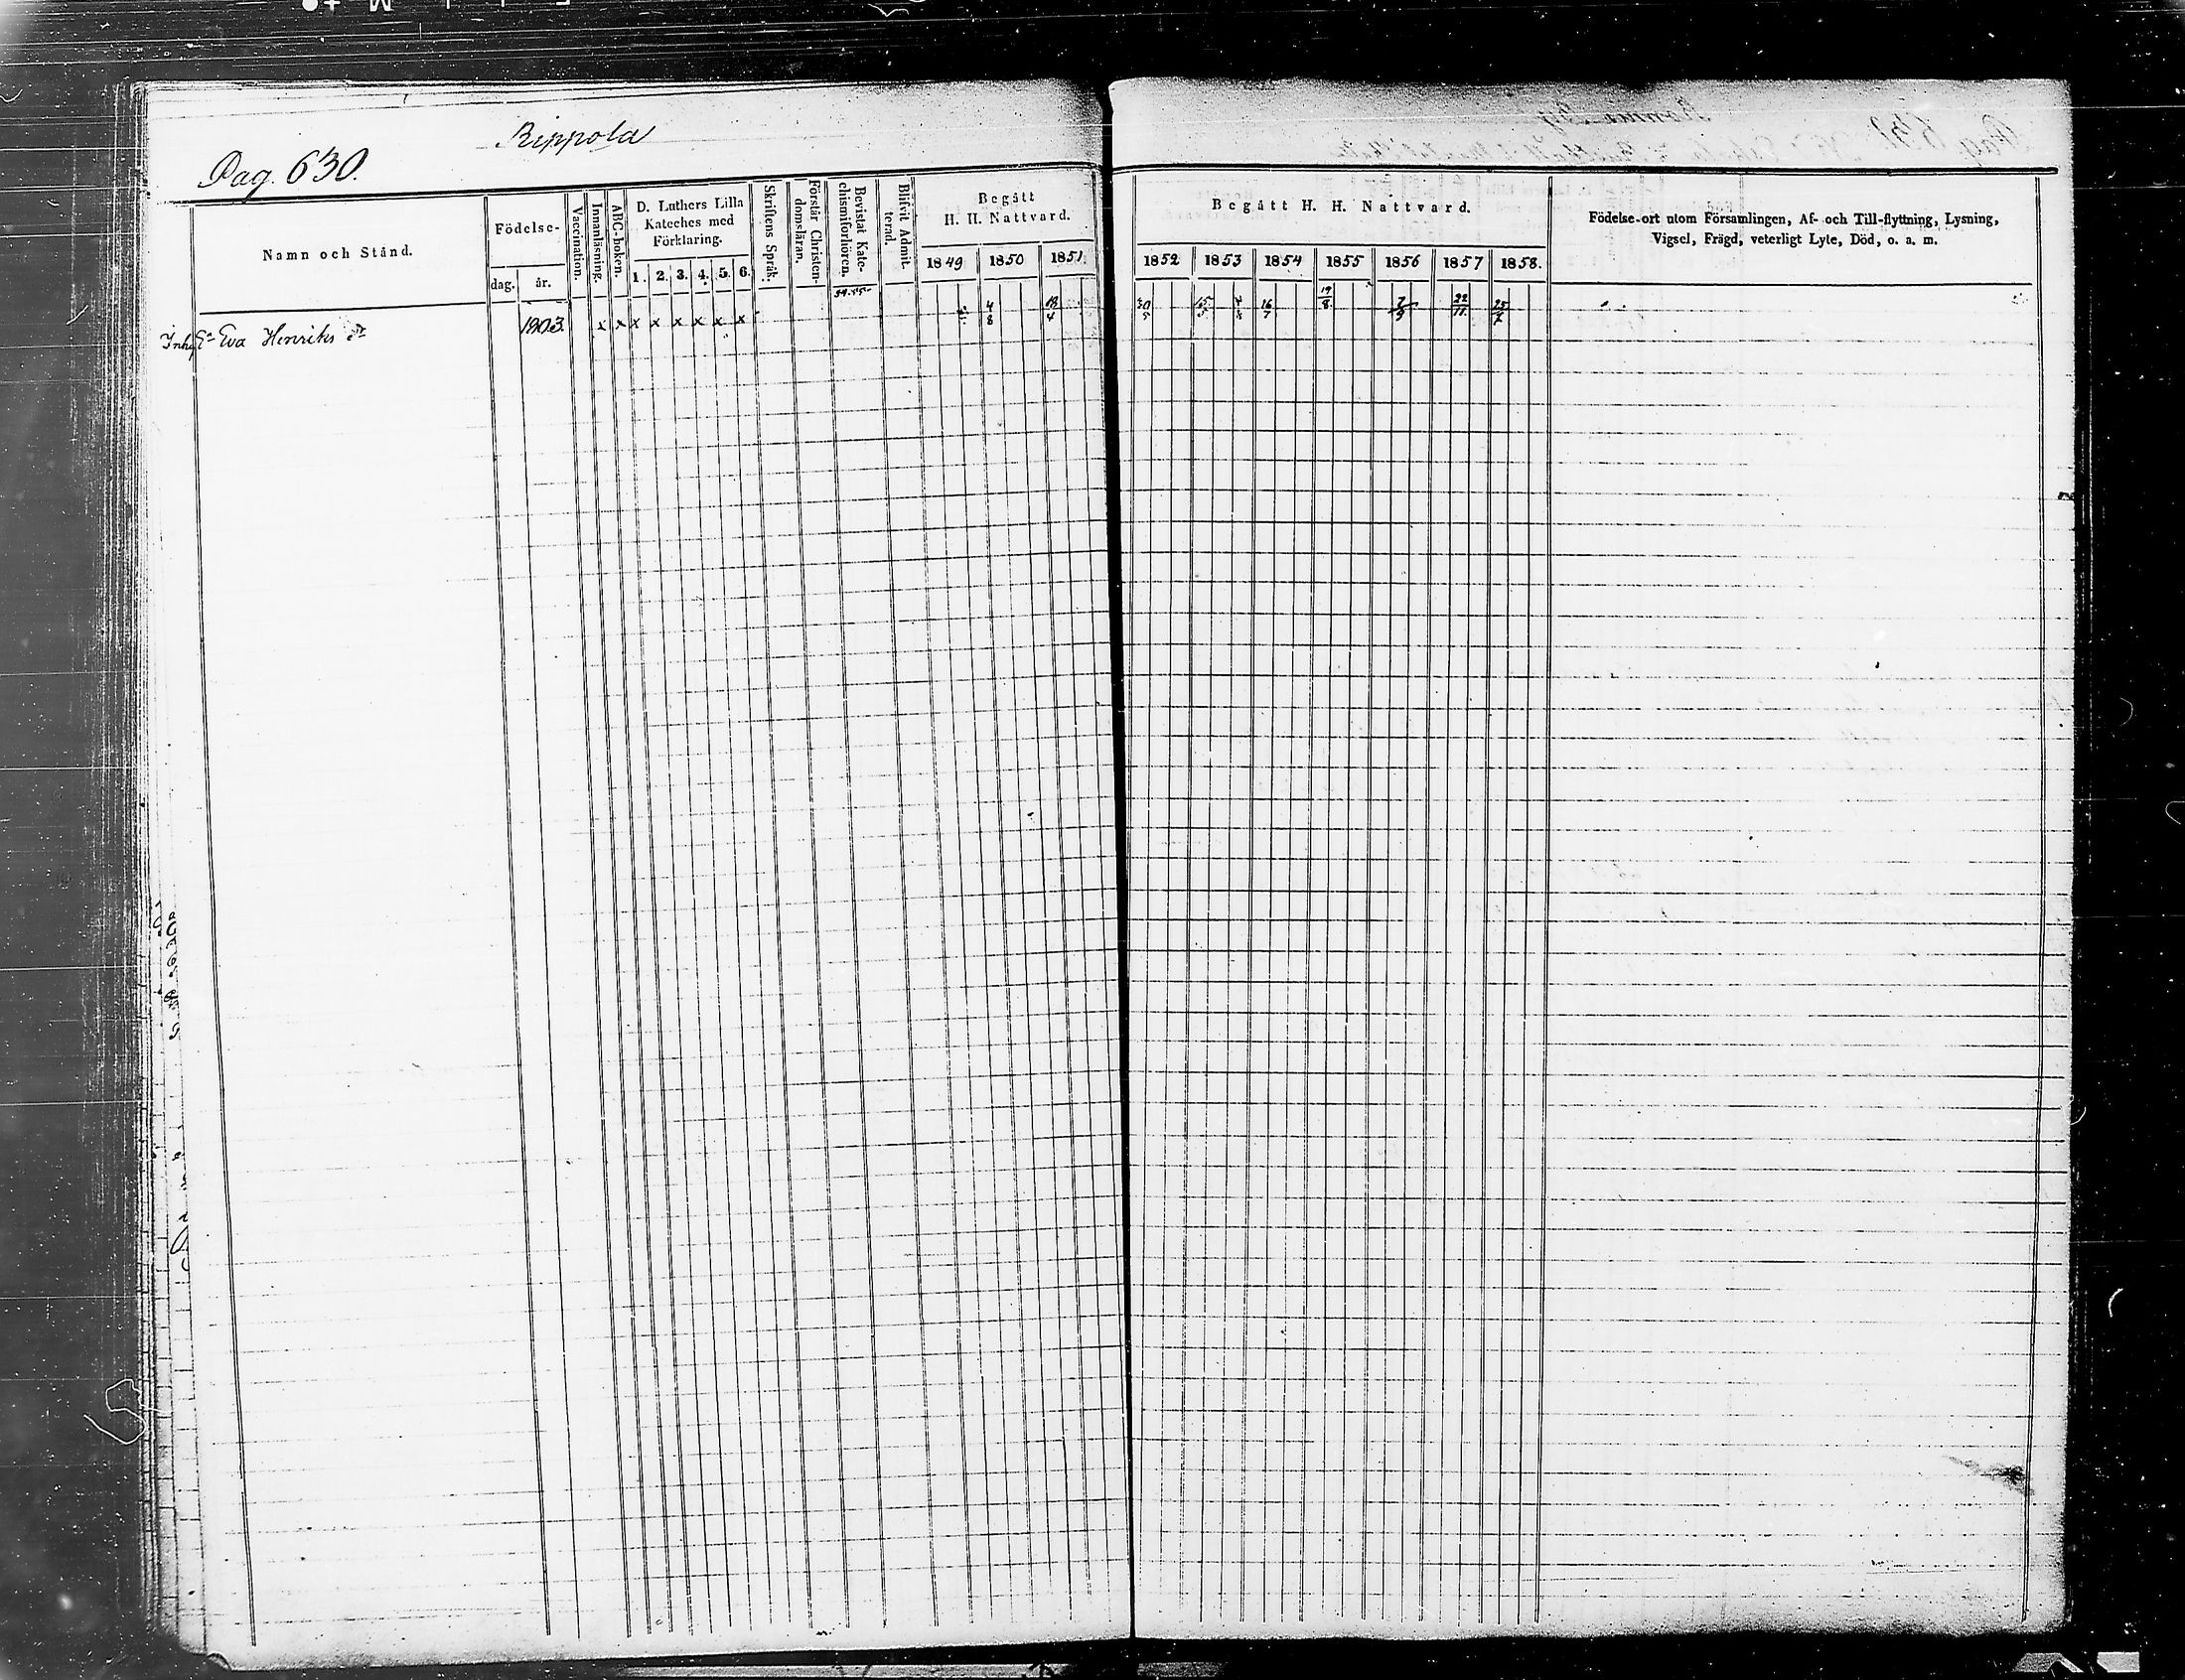 Rippola
Pag. 630.
Namn och Stånd.
Födelse-
dag. år.
Vaccination.
Innanläsning.
ABC-boken.
D. Luthers Lilla
Kateches med
Förklaring.
1. 2. 3. 4. 5. 6.
Skriftens Språk.
Förstår Christen-
domsläran.
Bevistat Kate-
chismiförhören.
Blifvit Admit-
terad.
Begått
H. H. Nattvard.
1849 1850 1851
Begått H. H. Nattvard.
1852 1853 1854 1855 1856 1857 1858.
Födelse-ort utom Församlingen, Af- och Till-flyttning, Lysning,
Vigsel, Frägd, veterligt Lyte, Död, o. a. m.
Eva Henriks dr 1803 x x x x x x x x 4/8 18/4 30/5 16/7 19/8 7/9 22/11 25/7